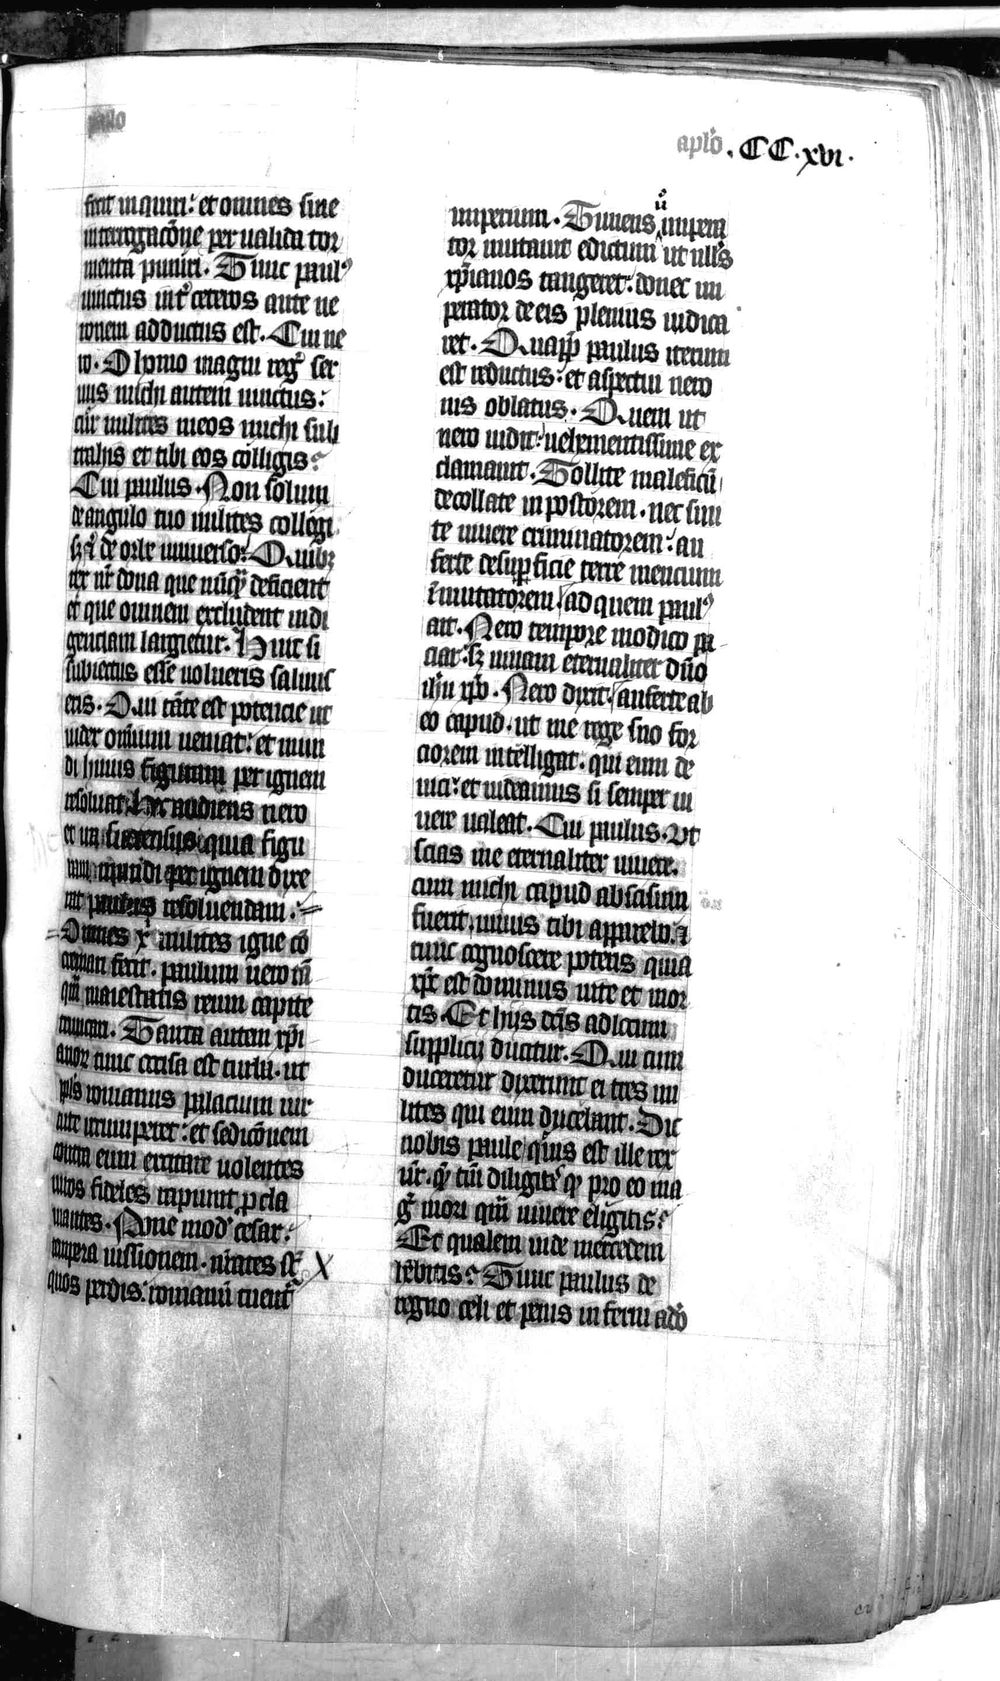 paulo
aplo. CC.xvi.
fecit inquiri: et omnes sine
interrogacōne per ualida tor
menta puniri. Tunc paulꝰ
uinctus int᷑ ceteros ante ne
ronem adductus est. Cui ne
ro. O homo magni reg᷑ ser
uus michi autem uinctus:
cur milites meos michi sub
trahis et tibi eos colligis?
Cui paulus. Non solum
de angulo tuo milites collegi.
sꝫ de orbe uniuerso. Quibꝫ
rex nr̄ dona que nūqͣ deficient
et que omnem excludent indi
gentiam largietur. Huic si
subiectus esse uolueris saluus
eris. Qui tāte est potencie ut
iudex omnium ueniat: et mun
di huius figuram per ignem
resoluat. Hec audiens nero
et ira succensus quia figu
ram mundi per ignem dixe
rat paulus resoluendam.
Omnes xp̄i milites igne cō
cremari fecit. paulum uero tā
quā maiestatis reum capite
truncari. Tanta autem xp̄i
anoꝝ tunc cecisa est turba. ut
ppl̄s romanus palacium iur
ante irrumperet: et sedicōnem
contra eum excitare uolentes
uiros fideles rapiunt ꝓcla
mantes. Pone modū cesar.
tempera iussionem. nr̄ates sūt X
quos perdis: romanū tuent᷑
imperium. Timens ū impera
tor mutauit edictum ut nullꝰ
xp̄ianos tangeret: donec im
perator de eis plenius iudica
ret. Quapp̄ paulus iterum
est reductus: et aspectui nero
nis oblatus. Quem ut
nero uidit: uehementissime ex
clamauit. Tollite maleficū
decollate inpostorem. nec sini
te uiuere criminatorem: au
ferte desuꝑficie terre mencium
īmutatorem. ad quem paulꝰ
ait. Nero tempore modico pa
ciar. sꝫ uiuam eternaliter dn̄o
ihū xp̄o. Nero dixit. auferte ab
eo capud. ut me rege suo for
ciorem intelligat. qui eum de
uici: et uideamus si semper ui
uere ualeat. Cui paulus. Vt
scias me eternaliter uiuere.
cum michi capud abscisum
fuerit. uiuus tibi apparebo. ⁊
tunc cognoscere poteris quia
xp̄c est dominus uite et mor
tis. Et hijs dc̄is ad locum
supplicij ducitur. Qui cum
duceretur dixerunt ei tres mi
lites qui eum ducebant. Dic
nobis paule quis est ille rex
ur̄. qͣ tm̄ diligit᷑ qͣ pro eo ma
g᷑ mori quā uiuere eligitis?
Et qualem inde mercedem
hēbitis? Tunc paulus de
regno celi et penis inferni adō